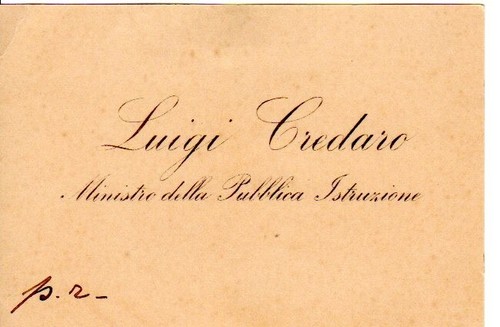 Luigi Credaro
Ministro della Pubblica Istruzione
p. r_